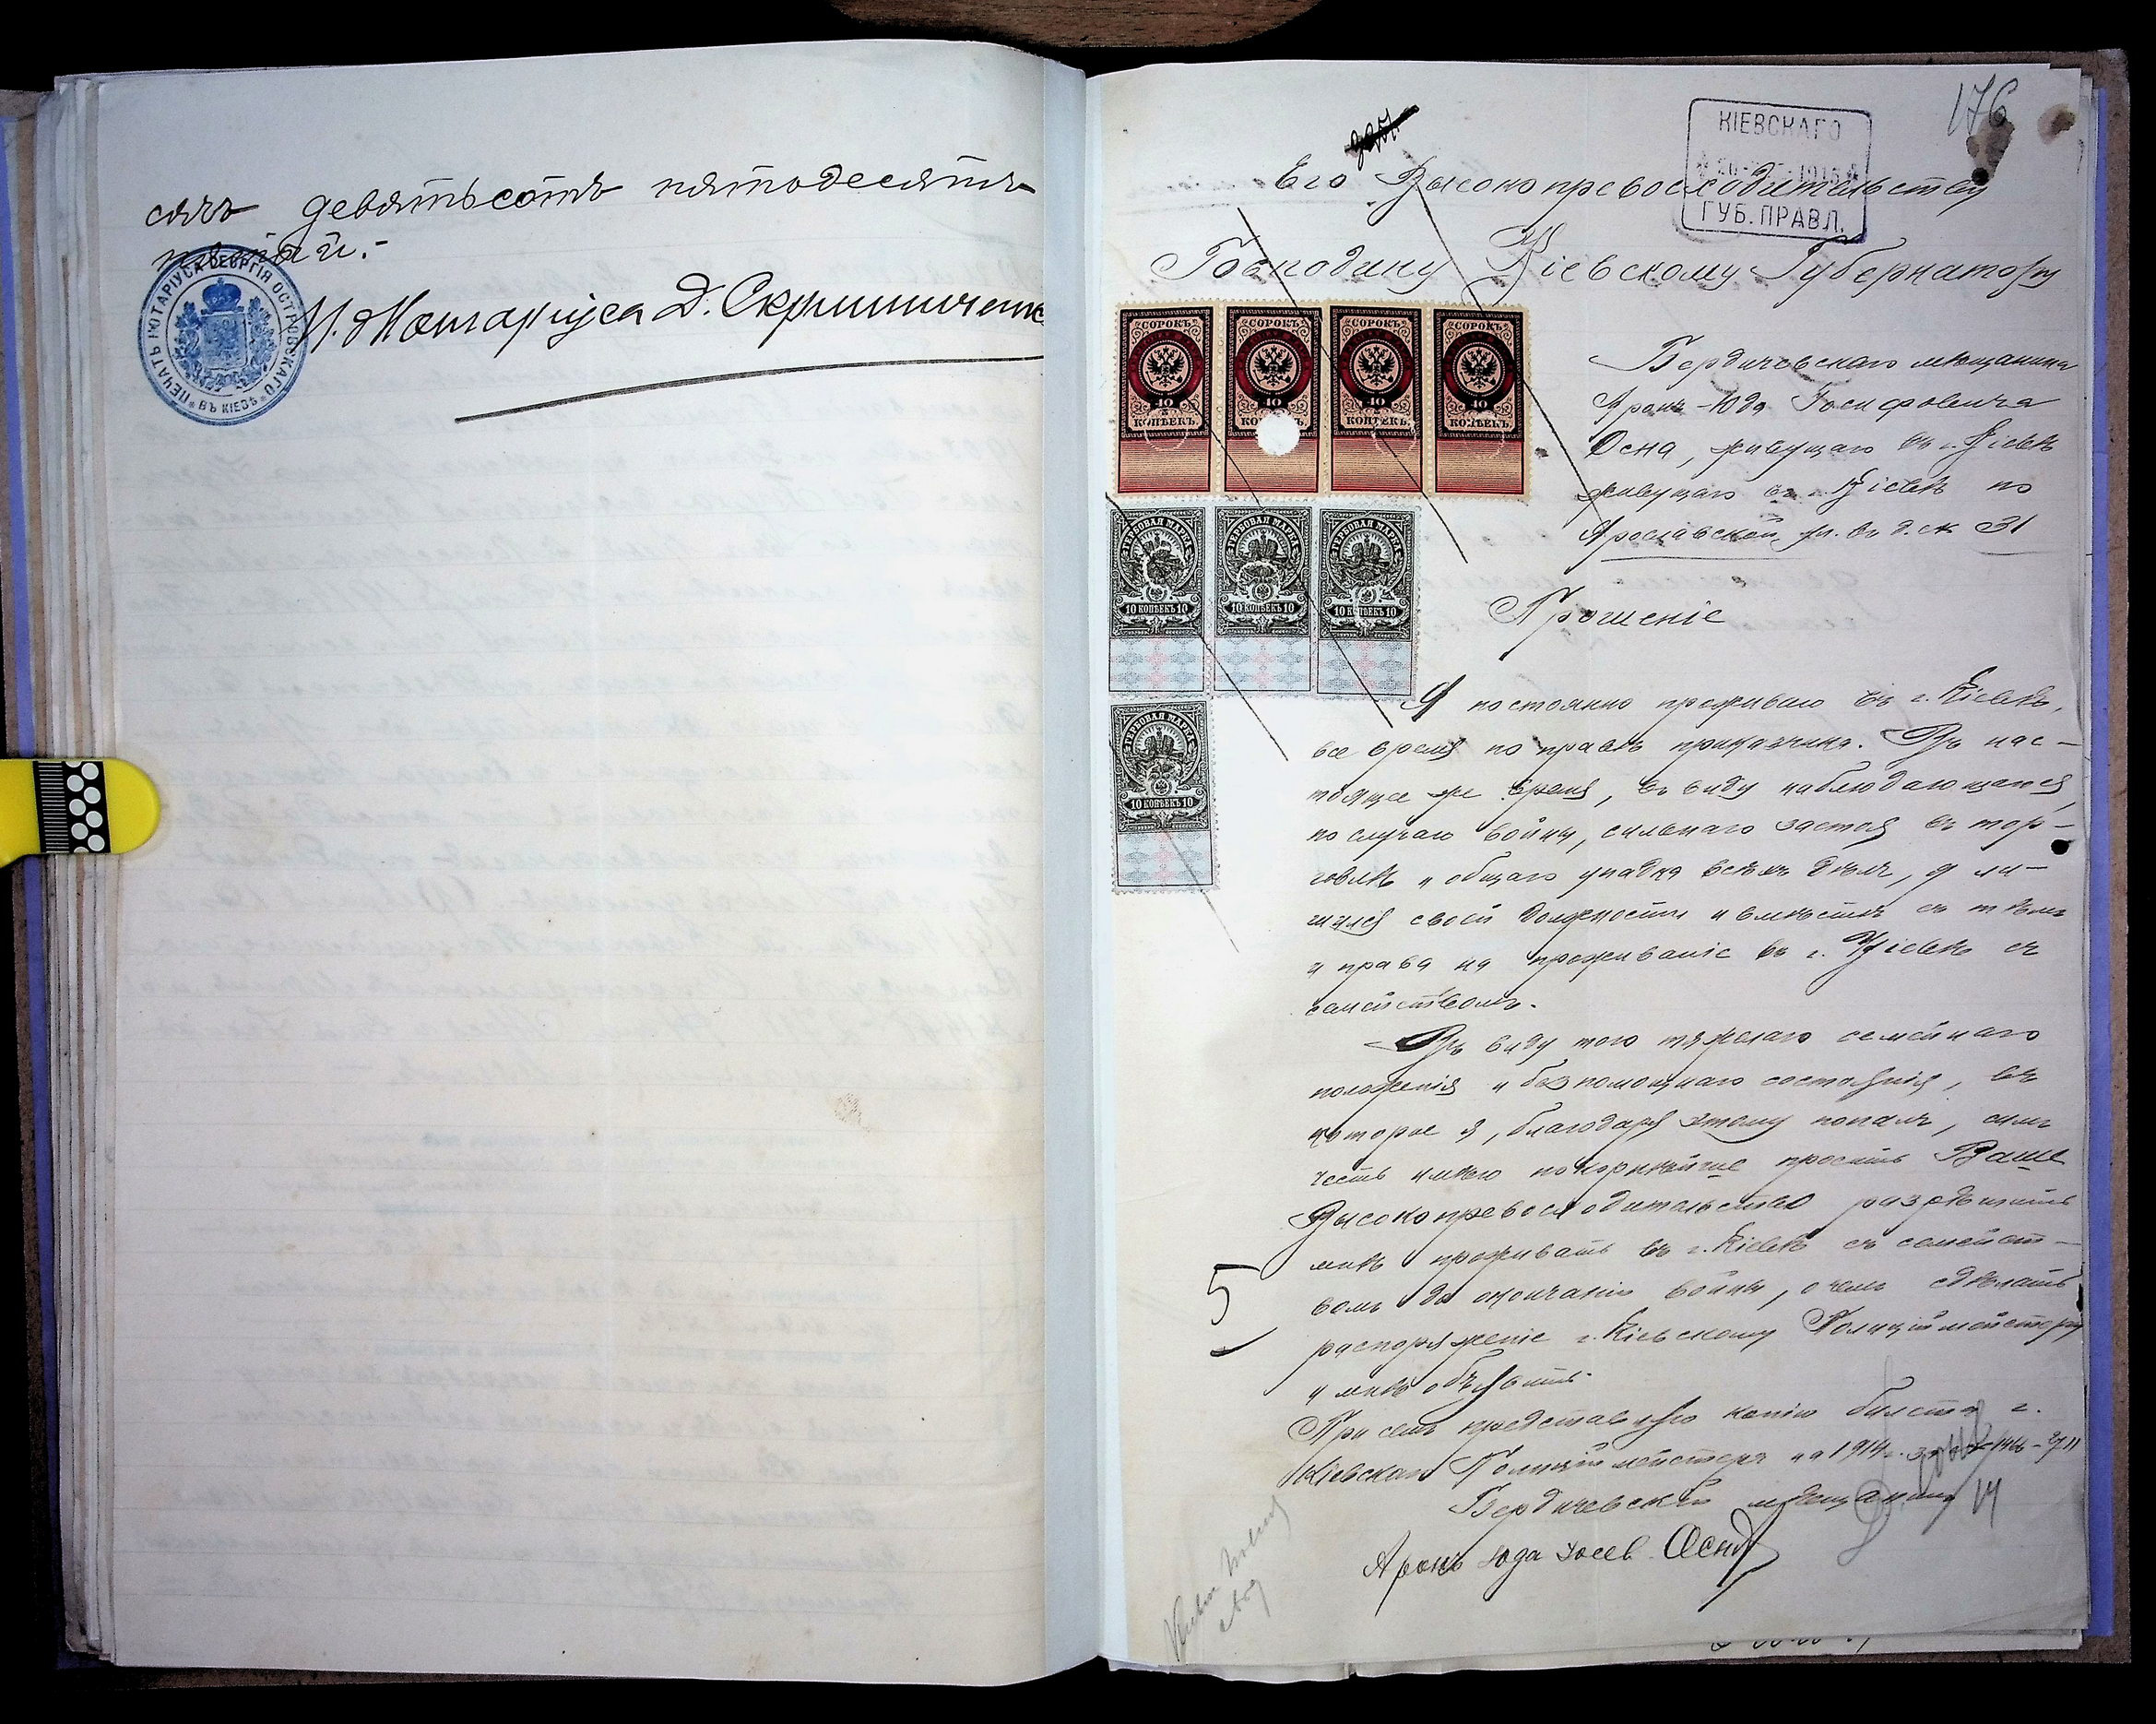 сячъ девятьсотъ пятодесятъ
третій.-
ПЕЧАТЬ НОТАРІУСА ГЕОРГІЯ ОСТРОВСКАГО
ВЪ КІЕВѢ
И. д. Нотаріуса Д. Скрипниченко
176
КІЕВСКАГО
ГУБ. ПРАВЛ.
Его Высокопревосходительству
Господину Кіевскому Губернатору
СОРОКЪ СОРОКЪ СОРОКЪ СОРОКЪ
40 40 40 40
КОПѢЕКЪ. КОПѢЕКЪ. КОПѢЕКЪ. КОПѢЕКЪ.
Бердичевскаго мѣщанина
Аронъ-Юда Іосифовича
Осна, живущаго въ г. Кіевѣ
живущаго въ г. Кіевѣ по
Ярославской ул. въ д. № 31
ГЕРБОВАЯ МАРКА ГЕРБОВАЯ МАРКА ГЕРБОВАЯ МАРКА
10 КОПѢЕКЪ 10 10 КОПѢЕКЪ 10 10 КОПѢЕКЪ 10
Прошеніе
ГЕРБОВАЯ МАРКА
10 КОПѢЕКЪ 10
Я постоянно проживаю въ г. Кіевѣ,
все время по правѣ приказчика. Въ нас-
тоящее же время, въ виду наблюдающагося,
по случаю войны, сильнаго застоя въ тор-
говлѣ и общаго упадка всѣхъ дѣлъ, я ли-
шился своей должности и вмѣстѣ съ тѣмъ
и права на проживаніе въ г. Кіевѣ съ
семействомъ.
Въ виду того тяжелаго семейнаго
положенія и безпомощнаго состоянія, въ
которое я, благодаря этому попалъ, симъ
честь имѣю покорнѣйше просить Ваше
Высокопревосходительство разрѣшить
мнѣ проживать въ г. Кіевѣ съ семейст-
вомъ до окончанія войны, о чемъ сдѣлать
распоряженіе г. Кіевскому Полиціймейстеру
и мнѣ объявить.
5
При семъ представляю копію билета г.
Кіевскаго Полиціймейстера на 1914 г. за №
Бердичевскій мѣщанинъ
Аронъ Юда Іосев. Оснъ